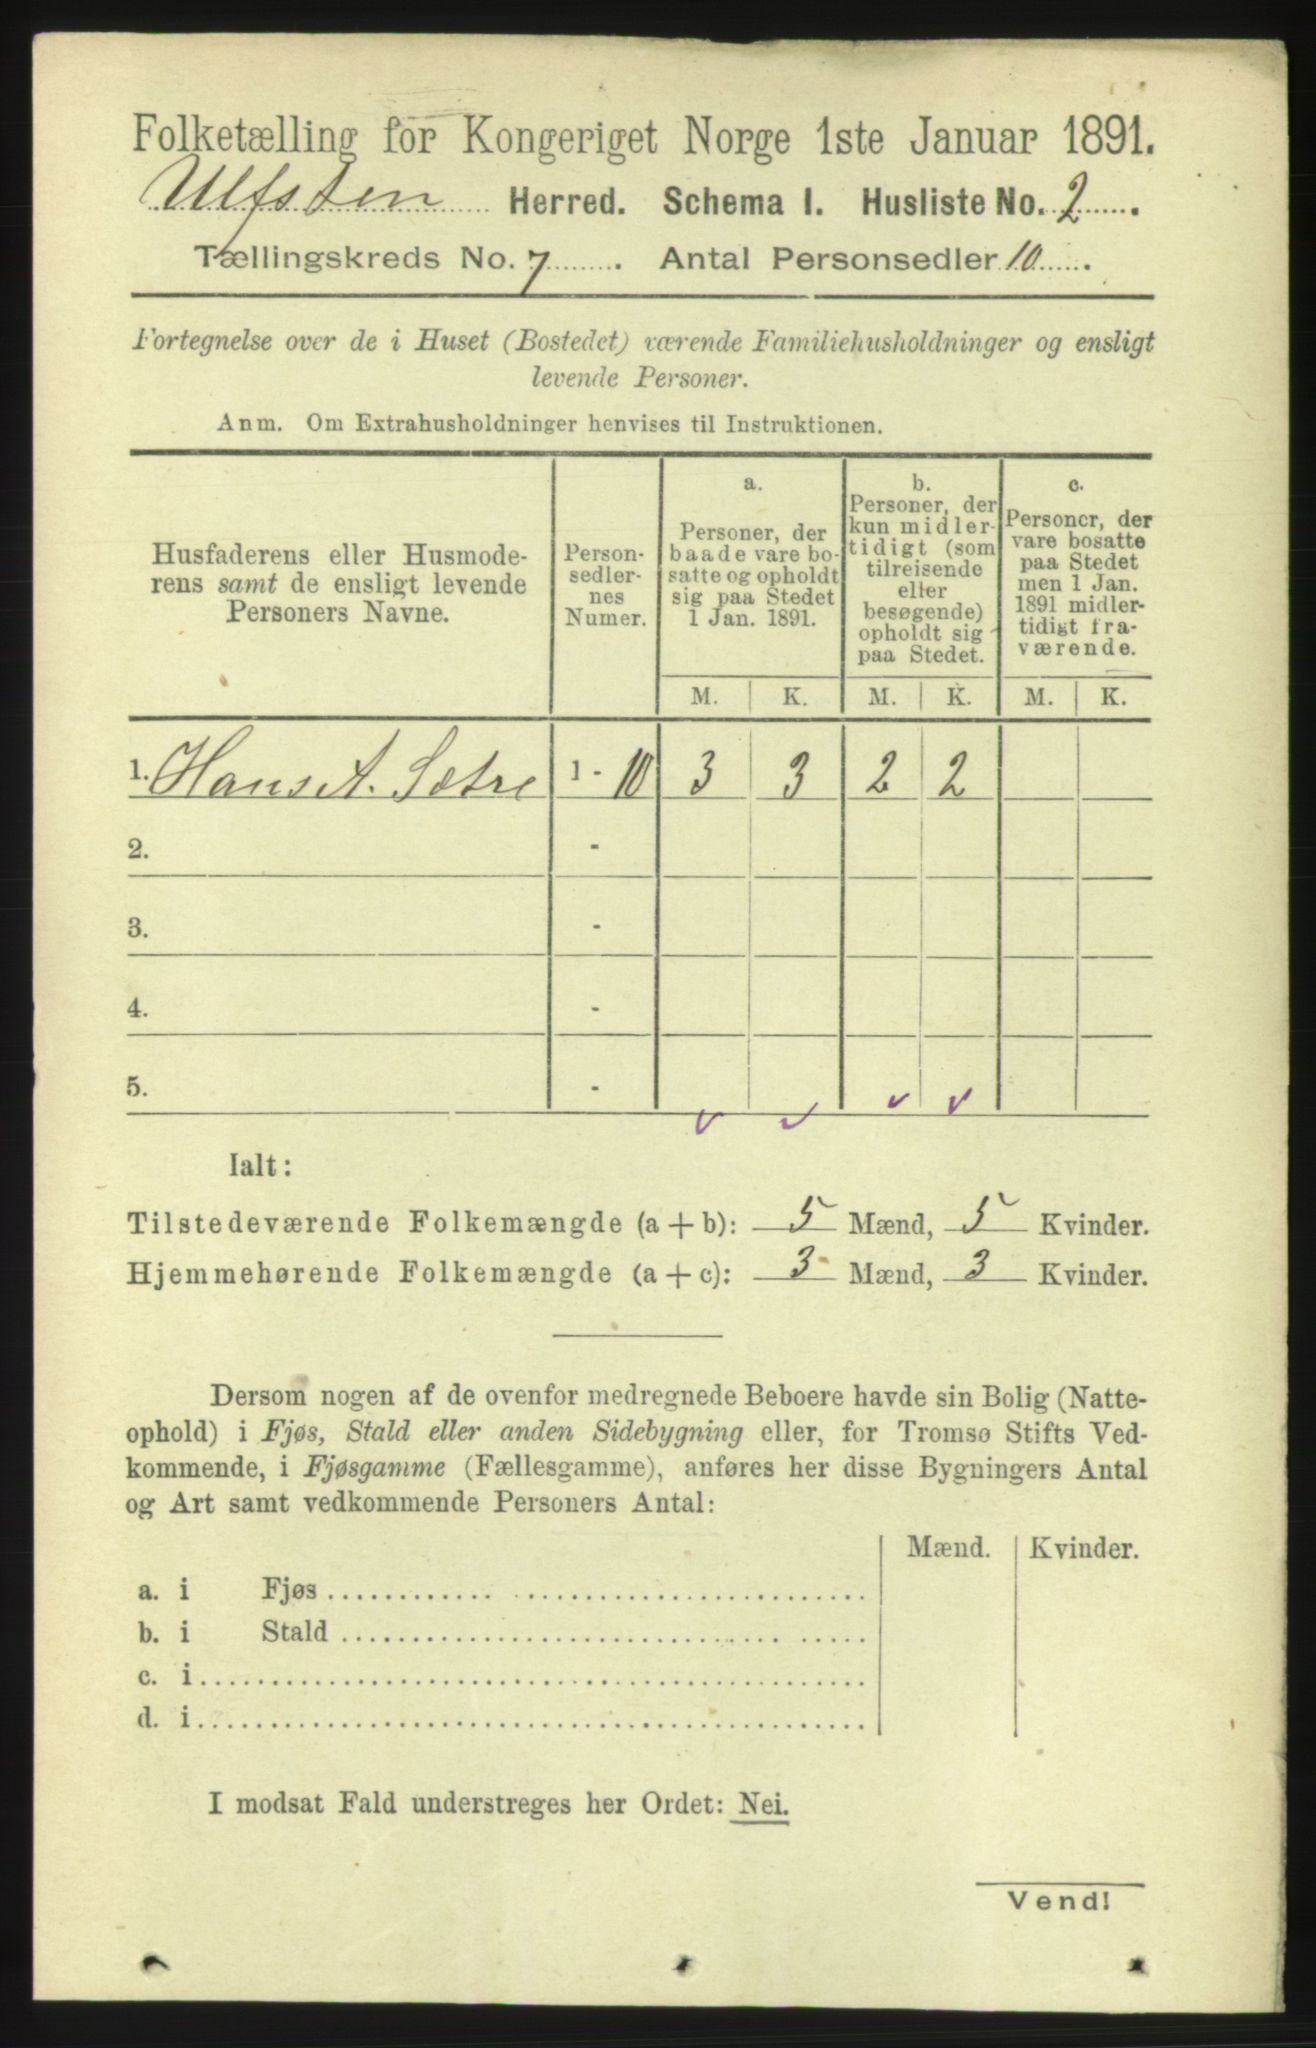 Folketælling for Kongeriget Norge 1ste Januar 1891.
Ulfsten Herred. Schema I. Husliste No. 2.
Tællingskreds No. 7. Antal Personsedler 10.
Fortegnelse over de i Huset (Bostedet) værende Familiehusholdninger og ensligt
levende Personer.
Anm. Om Extrahusholdninger henvises til Instruktionen.
Husfaderens eller Husmode-
rens samt de ensligt levende
Personers Navne.
Person-
sedler-
nes
Numer.
a.
Personer, der
baade vare bo-
satte og opholdt
sig paa Stedet
1 Jan. 1891.
b.
Personer, der
kun midler-
tidigt (som
tilreisende
eller
besøgende)
opholdt sig
paa Stedet.
c.
Personer, der
vare bosatte
paa Stedet
men 1 Jan.
1891 midler-
tidigt fra-
værende.
M. K. M. K. M. K.
1. Hans A. Sætre 1 - 10 3 3 2 2
2. -
3. -
4. -
5. -
Ialt:
Tilstedeværende Folkemængde (a + b): 5 Mænd, 5 Kvinder.
Hjemmehørende Folkemængde (a + c): 3 Mænd, 3 Kvinder.
Dersom nogen af de ovenfor medregnede Beboere havde sin Bolig (Natte-
ophold) i Fjøs, Stald eller anden Sidebygning eller, for Tromsø Stifts Ved-
kommende, i Fjøsgamme (Fællesgamme), anføres her disse Bygningers Antal
og Art samt vedkommende Personers Antal:
Mænd. Kvinder.
a. i Fjøs
b. i Stald
c. i
d. i
I modsat Fald understreges her Ordet: Nei.
Vend!